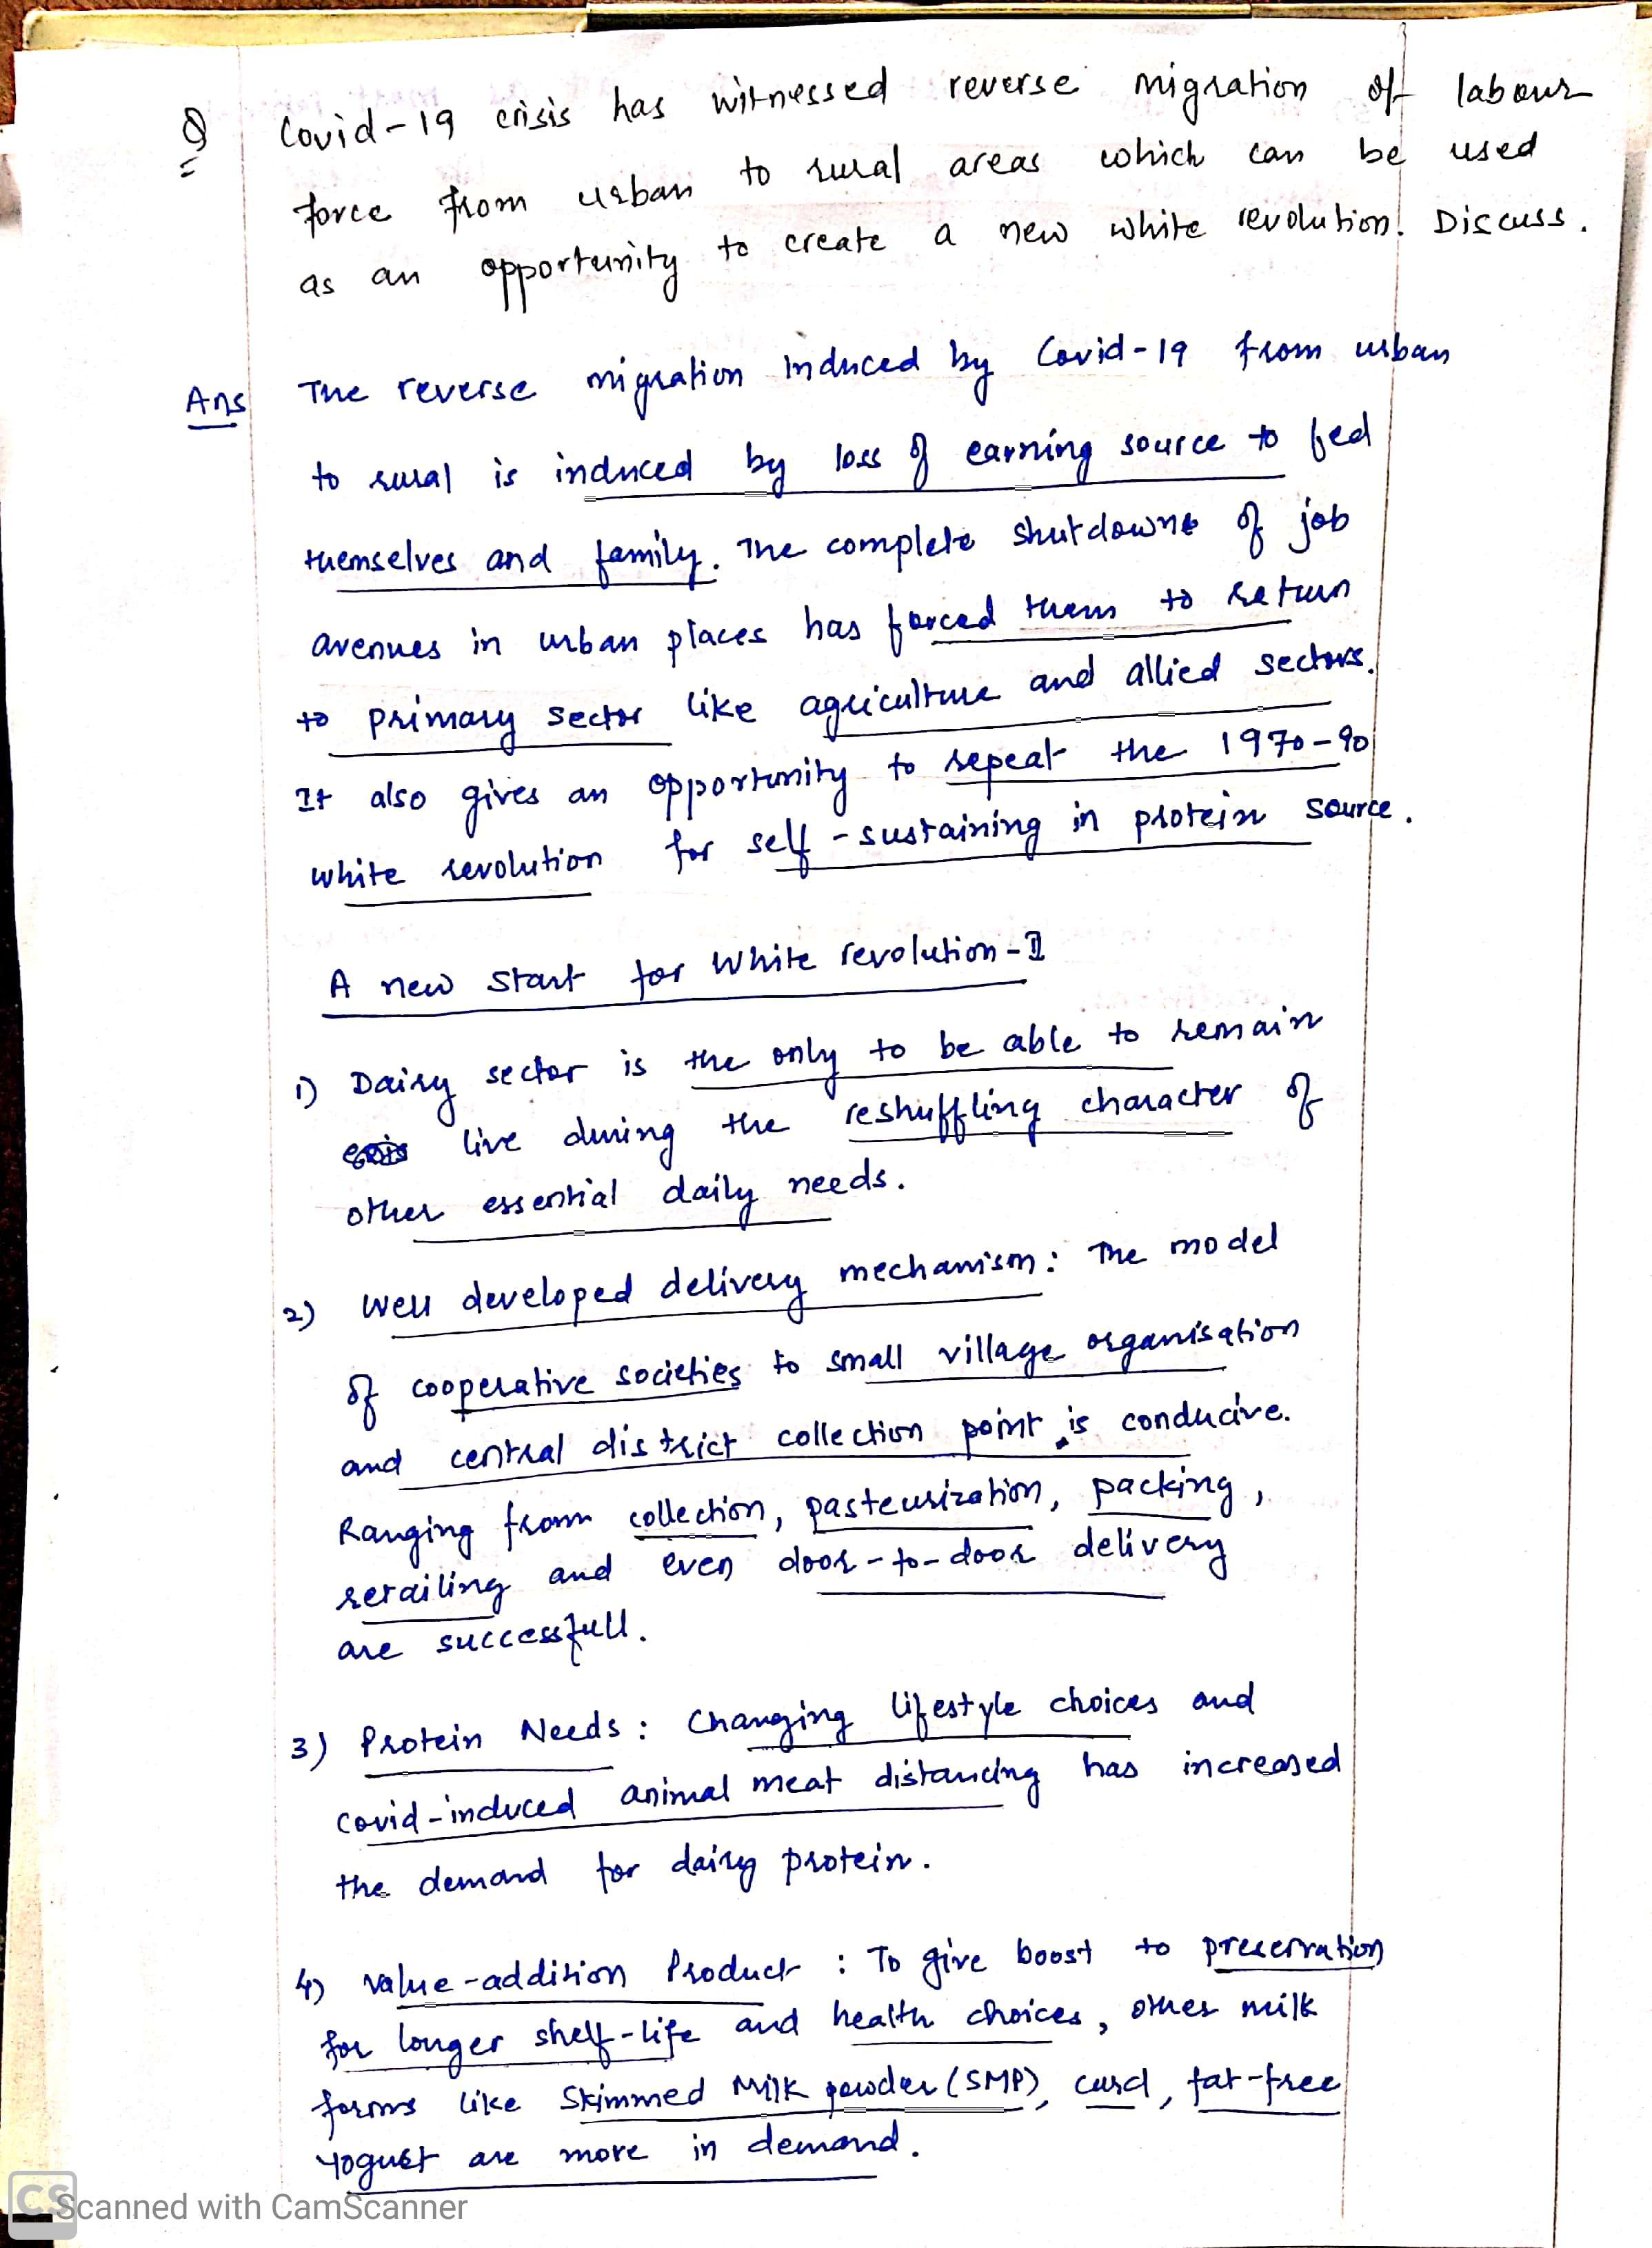 Q Covid-19 crisis has witnessed reverse migration of labour
force from urban to rural areas which can be used
as an opportunity to create a new white revolution. Discuss.
Ans The reverse migration induced by Covid-19 from urban
to rural is induced by loss of earning source to fed
themselves and family. The complete shutdowns of job
avenues in urban places has forced them to return
to primary sector like agriculture and allied sectors.
It also gives an opportunity to repeat the 1970-90
white revolution for self-sustaining in protein source.
A new start for White revolution-I
1) Dairy sector is the only to be able to remain
live during the reshuffling character of
other essential daily needs.
2) Well developed delivery mechanism: The model
of cooperative societies to small village organisation
and central district collection point is conducive.
Ranging from collection, pasteurization, packing,
retailing and even door-to-door delivery
are successfull.
3) Protein Needs: Changing lifestyle choices and
covid-induced animal meat distancing has increased
the demand for dairy protein.
4) Value-addition Product: To give boost to preservation
for longer shelf-life and health choices, other milk
forms like Skimmed Milk powder (SMP), curd, fat-free
Yogurt are more in demand.
CS Scanned with CamScanner